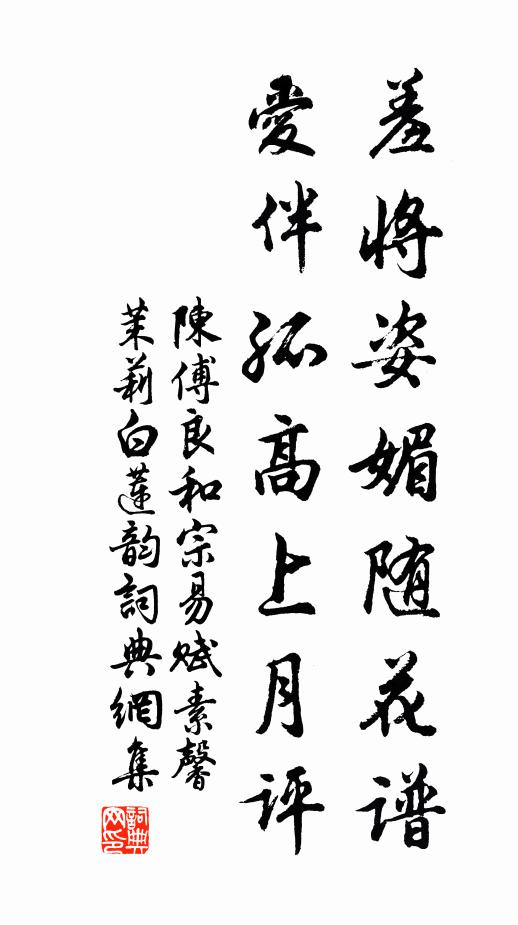 羞將姿媚随花谱
愛伴孤高上月评
陳傅良和宗易賦素馨
茉莉白蓮韵詞典網集
詞典
网印